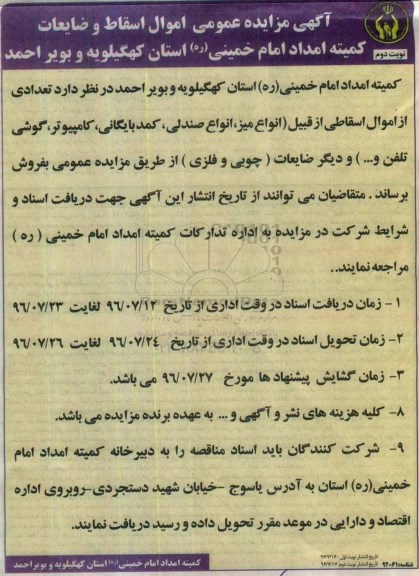 آگهی مزایده عمومی اموال اسقاط و ضایعات
کمیته امداد امام خمینی (ره) استان کهگیلویه و بویر احمد
نوبت دوم
کمیته امداد امام خمینی (ره) استان کهگیلویه و بویر احمد در نظر دارد تعدادی
از اموال اسقاطی از قبیل (انواع میز، انواع صندلی، کمد بایگانی، کامپیوتر، گوشی
تلفن و...) و دیگر ضایعات (چوبی و فلزی) از طریق مزایده عمومی بفروش
برساند. متقاضیان می توانند از تاریخ انتشار این آگهی جهت دریافت اسناد و
شرایط شرکت در مزایده به اداره تدارکات کمیته امداد امام خمینی (ره)
مراجعه نمایند..
۱- زمان دریافت اسناد در وقت اداری از تاریخ ۹۶/۰۷/۱۲ لغایت ۹۶/۰۷/۲۳
۲- زمان تحویل اسناد در وقت اداری از تاریخ ۹۶/۰۷/۲۴ لغایت ۹۶/۰۷/۲۶
۳- زمان گشایش پیشنهاد ها مورخ ۹۶/۰۷/۲۷ می باشد.
۸- کلیه هزینه های نشر و آگهی و ... به عهده برنده مزایده می باشد.
۹- شرکت کنندگان باید اسناد مناقصه را به دبیرخانه کمیته امداد امام
خمینی (ره) استان به آدرس یاسوج -خیابان شهید دستجردی-روبروی اداره
اقتصاد و دارایی در موعد مقرر تحویل داده و رسید دریافت نمایند.
تاریخ انتشار نوبت اول: ۹۶/۷/۱۶
شناسه: ۹۲۰۶۱ تاریخ انتشار نوبت دوم: ۹۶/۷/۱۷
کمیته امداد امام خمینی (ره) استان کهگیلویه و بویر احمد